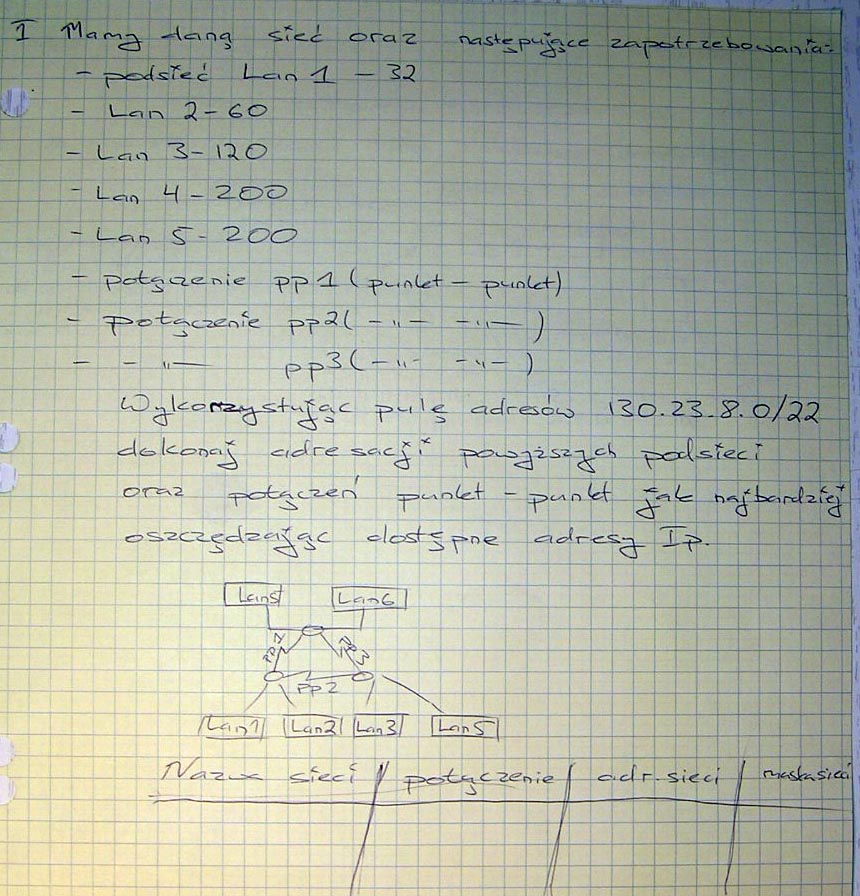 I Mamy daną sieć oraz następujące zapotrzebowania:
- podsieć Lan 1 - 32
- Lan 2 - 60
- Lan 3 - 120
- Lan 4 - 200
- Lan 5 - 200
- połączenie pp1 (punkt - punkt)
- połączenie pp2 ( -„- -„- )
- -„- pp3 ( -„- -„- )
Wykorzystując pulę adresów 130.23.8.0/22
dokonaj adresacji powyższych podsieci
oraz połączeń punkt - punkt jak najbardziej
oszczędzając dostępne adresy Ip.
Lan5 Lan6
pp3
pp2
Lan1 Lan2 Lan3 Lan5
sieci połączenie adr. sieci maska sieci